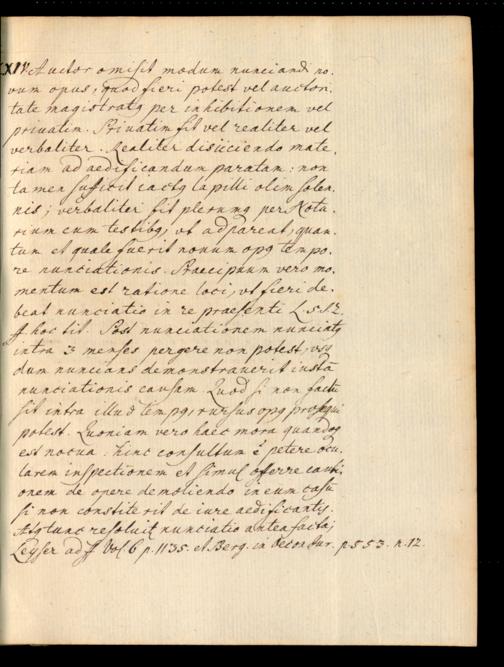 XIV Auctor omisit modum nunciandi no-
vum opus; quod fieri potest vel auctori-
tate magistratq per inhibitionem vel
privatim. Privatim fit vel realiter vel
verbaliter. Realiter disiiciendo mate-
riam ad aedificandum paratam: non
tamen sufficit iactq lapilli olim solen-
nis; verbaliter fit plerumq per Nota-
rium cum testibq, ut adpareat, quan-
tum et quale fuerit novum opq tempo-
re nunciationis. Praecipuum vero mo-
mentum est ratione loci, ut fieri de-
beat nunciatio in re praesenti L. 5. § 2.
ff hoc tit. Post nunciationem nunciatq
intra 3 menses pergere non potest, usq
dum nuncians demonstraverit iustã
nunciationis causam. Quod si non factũ
sit intra illud tempq, rursus opq prosequi
potest. Quoniam vero haec mora quandoq
est nocua: hinc consultum ẽ petere ocu-
larem inspectionem et simul offerre cauti-
onem de opere demoliendo in eum casũ
si non constiterit de iure aedificantis.
Atq tunc resolvit nunciatio antea facta;
Leyser ad ff Vol. 6 p. 1135. et Berg. in Oecon Jur. p. 553. n. 12.